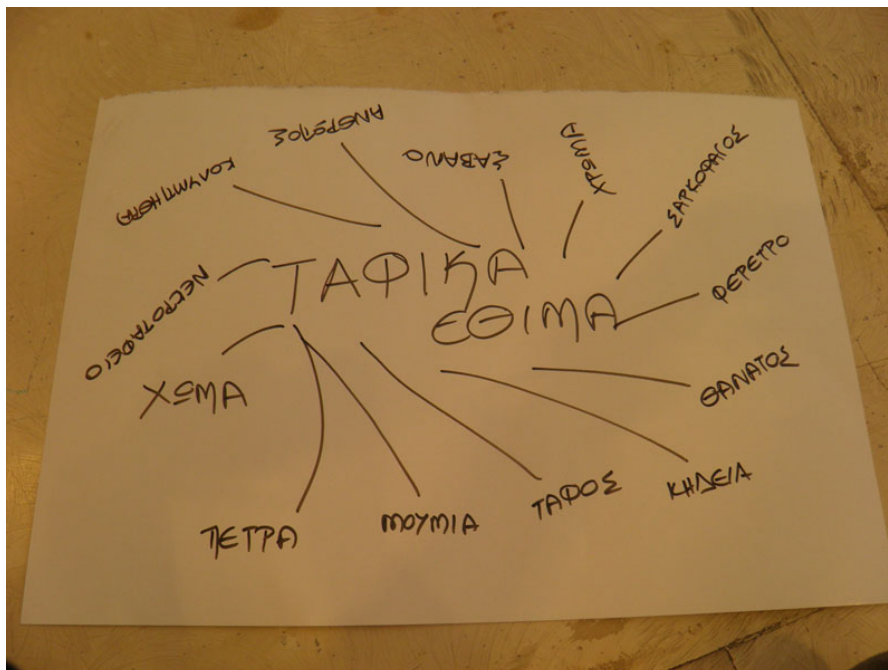 ΤΑΦΙΚΑ
ΕΘΙΜΑ
ΑΝΘΡΩΠΟΣ
ΣΑΒΑΝΟ
ΧΡΩΜΑ
ΣΑΡΚΟΦΑΓΟΣ
ΦΕΡΕΤΡΟ
ΘΑΝΑΤΟΣ
ΚΗΔΕΙΑ
ΤΑΦΟΣ
ΜΟΥΜΙΑ
ΠΕΤΡΑ
ΧΩΜΑ
ΝΕΚΡΟΤΑΦΕΙΟ